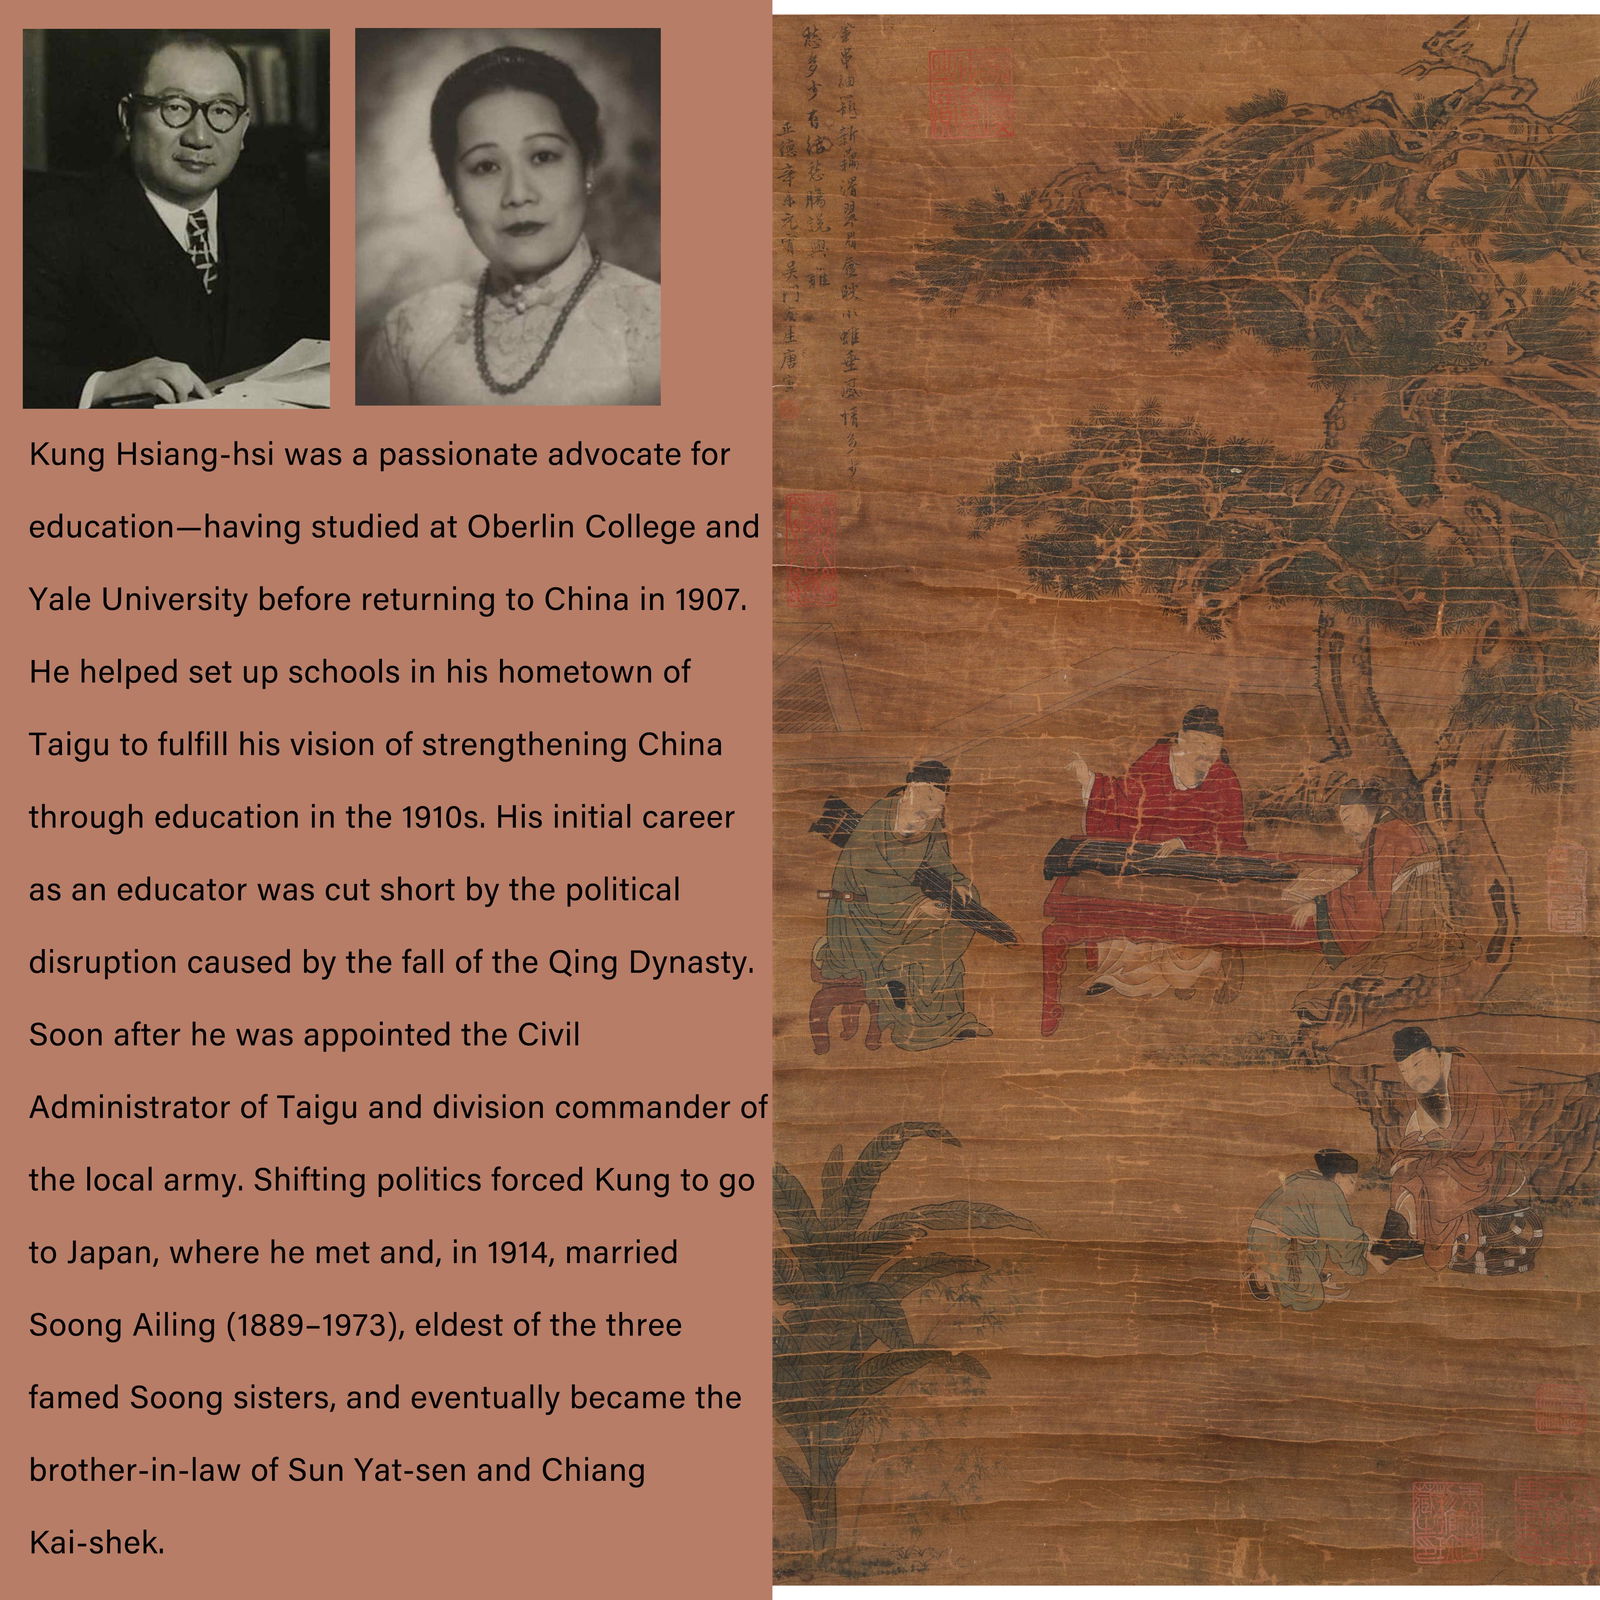 Kung Hsiang-hsi was a passionate advocate for
education—having studied at Oberlin College and
Yale University before returning to China in 1907.
He helped set up schools in his hometown of
Taigu to fulfill his vision of strengthening China
through education in the 1910s. His initial career
as an educator was cut short by the political
disruption caused by the fall of the Qing Dynasty.
Soon after he was appointed the Civil
Administrator of Taigu and division commander of
the local army. Shifting politics forced Kung to go
to Japan, where he met and, in 1914, married
Soong Ailing (1889–1973), eldest of the three
famed Soong sisters, and eventually became the
brother-in-law of Sun Yat-sen and Chiang
Kai-shek.
愁多少百結愁腸說與誰
正德辛未元宵吳門唐寅